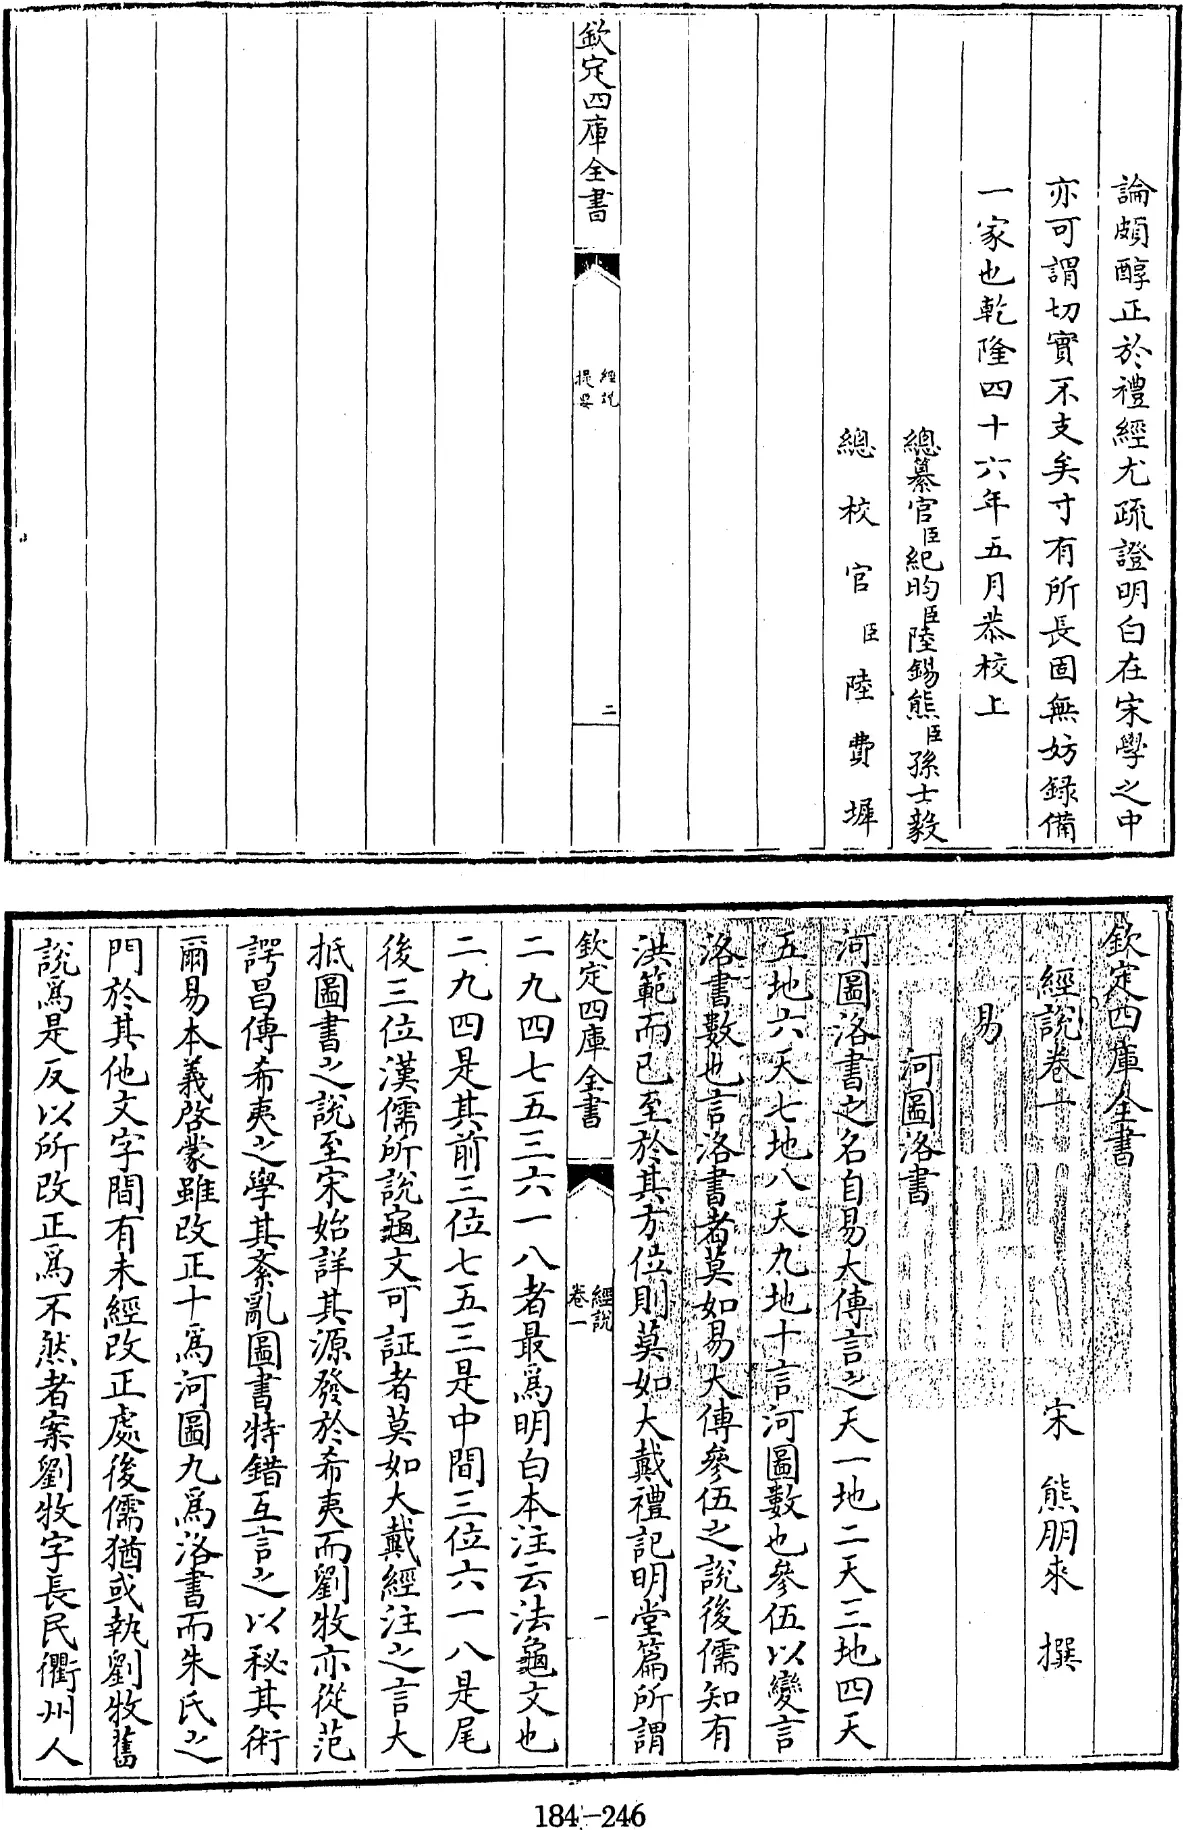 論頗醇正於禮經尤疏證明白在宋學之中
亦可謂切實不支矣寸有所長固無妨録備
一家也乾隆四十六年五月恭校上
總纂官臣紀昀臣陸錫熊臣孫士毅
總校官臣陸費墀
欽定四庫全書
經說
提要
二
欽定四庫全書
經說卷一
宋 熊朋來 撰
易
河圖洛書
河圖洛書之名自易大傳言之天一地二天三地四天
五地六天七地八天九地十言河圖數也參伍以變言
洛書數也言洛書者莫如易大傳參伍之說後儒知有
洪範而已至於其方位則莫如大戴禮記明堂篇所謂
欽定四庫全書
經說
卷一
一
二九四七五三六一八者最爲明白本注云法龜文也
二九四是其前三位七五三是中間三位六一八是尾
後三位漢儒所說龜文可証者莫如大戴經注之言大
抵圖書之說至宋始詳其源發於希夷而劉牧亦從范
諤昌傳希夷之學其紊亂圖書特錯互言之以秘其術
爾易本義啓蒙雖改正十爲河圖九爲洛書而朱氏之
門於其他文字間有未經改正處後儒猶或執劉牧舊
說爲是反以所改正爲不然者案劉牧字長民衢州人
184-246